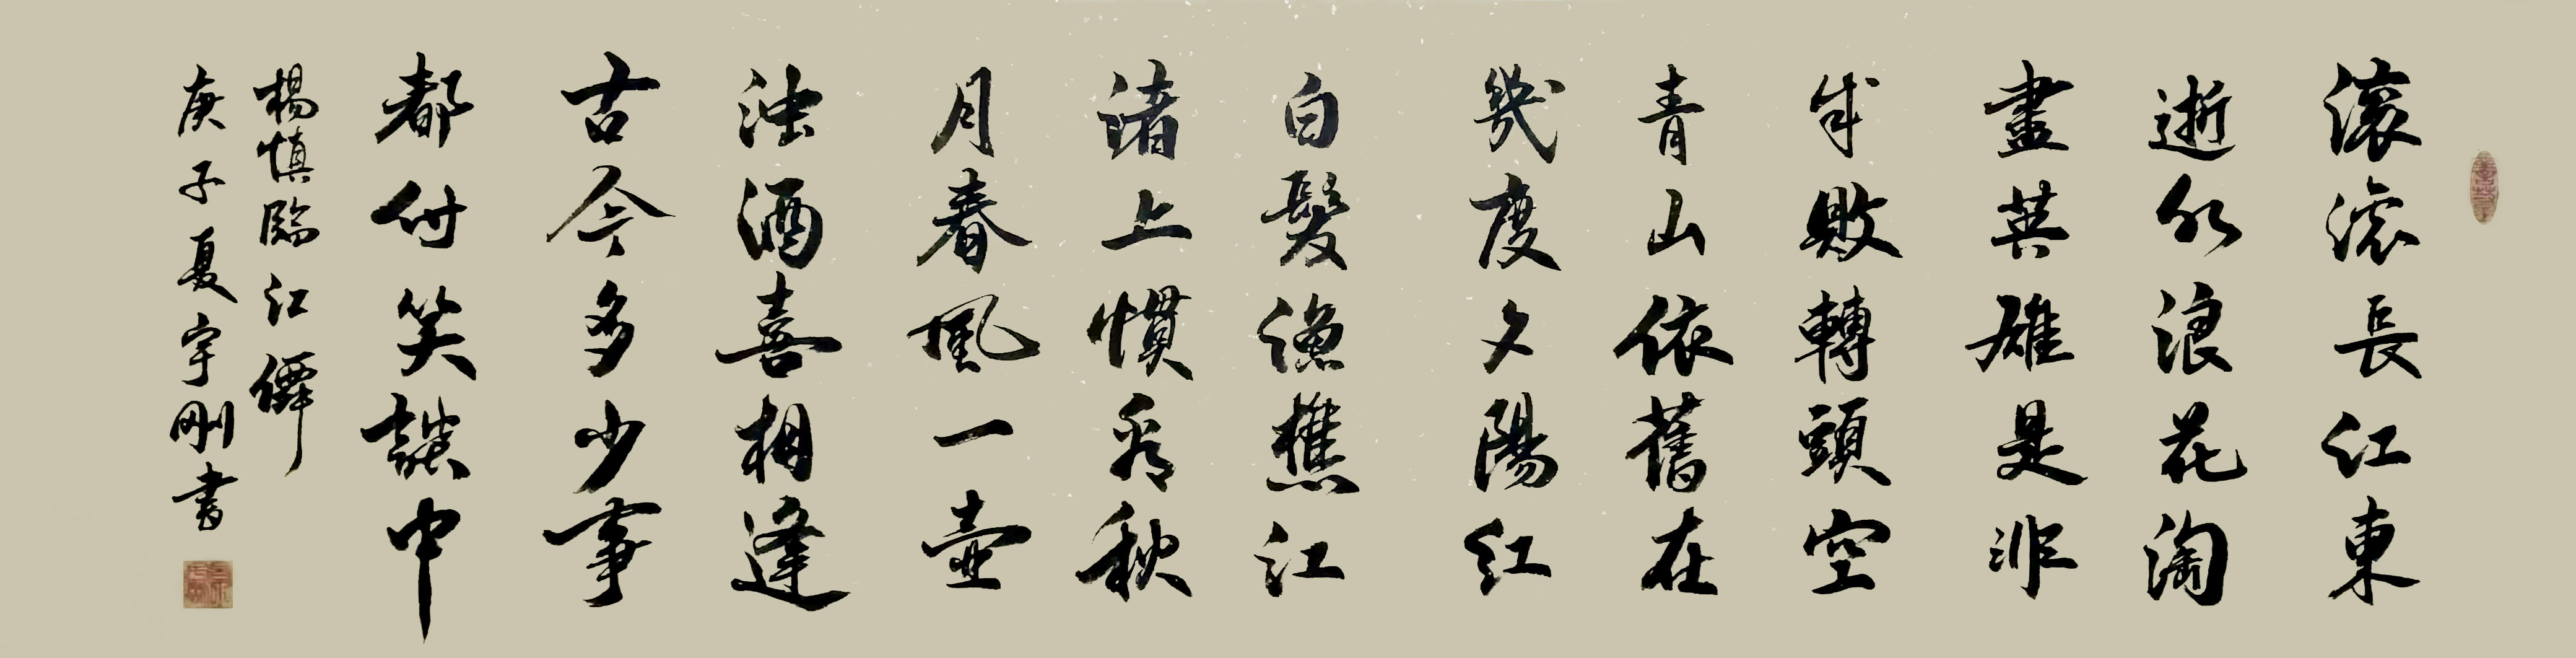 滚滚長江東
逝水浪花淘
盡英雄是非
成敗轉頭空
青山依舊在
幾度夕陽紅
白髮漁樵江
渚上慣看秋
月春風一壺
濁酒喜相逢
古今多少事
都付笑談中
楊慎臨江僊
庚子夏宇剛書